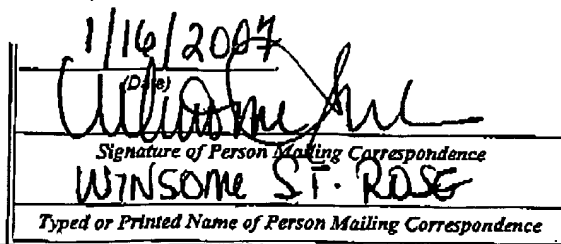 1/16/2007
(Date)
Signature of Person Mailing Correspondence
WINSOME ST. ROSE
Typed or Printed Name of Person Mailing Correspondence